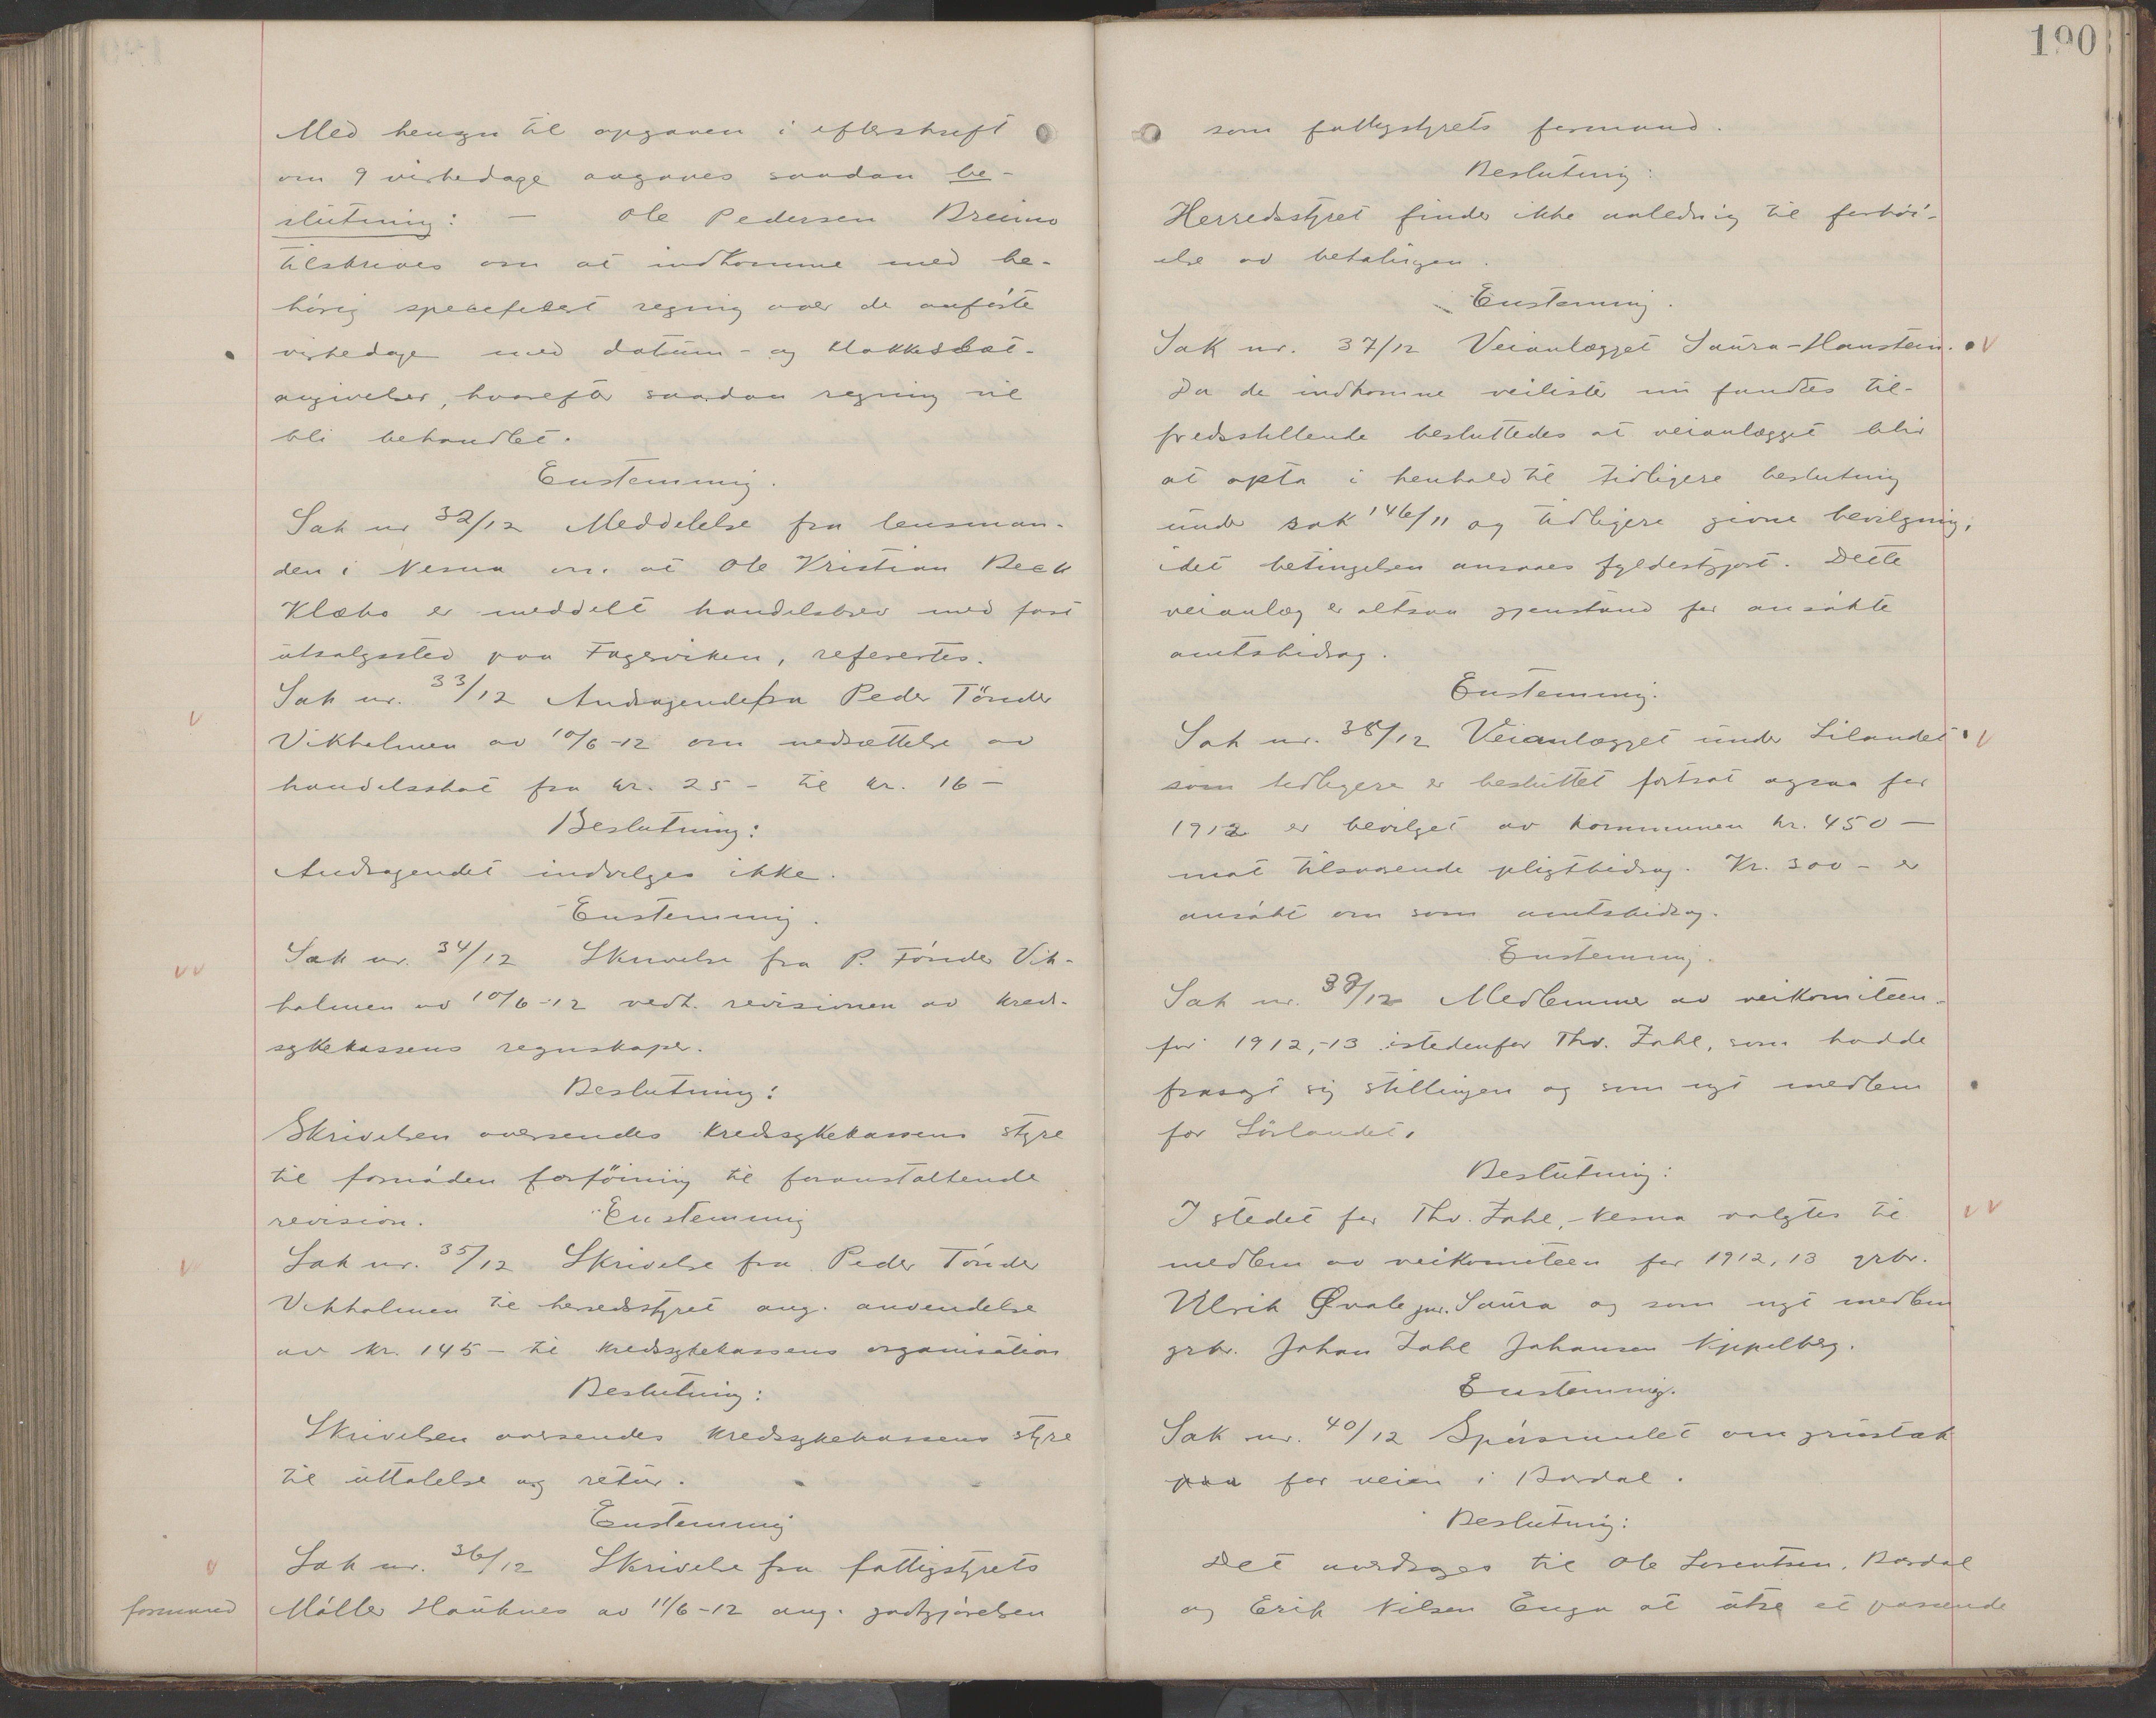 190
Med hensyn til opgaven i efterskrift
om 9 virkedage avgaves saadan be-
slutning: — Ole Pedersen Breimo
tilskrives om at indkomme med be-
hörig specefisert regning over de anförte
virkedage med datum- og klokkeslæt-
angivelser, hvorefter saadan regning vil
bli behandlet.
Enstemmig.
Sak nr 32/12 Meddelelse fra lensman-
den i Nesna om at Ole Kristian Beck
Klæbo er meddelt handelsbrev med fast
utsalgssted paa Fagerviken, refereres.
Sak nr. 33/12 Andragende fra Peder Tönder
Vikholmen av 10/6-12 om nedsættelse av
handelsskat fra kr. 25 - til kr. 16 —
Beslutning:
Andragendet indvilges ikke.
Enstemmig.
Sak nr. 34/12 Skrivelse fra P. Tönder Vik-
holmen av 10/6-12 vedk. revisionen av kreds-
sykekassens regnskaper.
Beslutning:
Skrivelsen oversendes kredssykekassens styre
til fornöden forföining til foranstaltende
revision. Enstemmig
Sak nr. 35/12 Skrivelse fra Peder Tönder
Vikholmen til herredsstyret ang. anvendelse
av kr. 145 — til kredssykekassens organisation
Beslutning:
Skrivelsen oversendes kredssykekassens styre
til uttalelse og retur.
Enstemmig
Sak nr. 36/12 Skrivelse fra fattigstyrets
formand Möller Hauknes av 11/6-12 ang. godtgjörelsen
som fattigstyrets formand.
Beslutning:
Herredsstyret finder ikke anledning til forhöi-
else av betalingen.
Enstemmig.
Sak nr. 37/12 Veianlægget Saura-Haustein.
Da de indkomne veilister nu fandtes til-
fredsstillende besluttedes at veianlægget blir
at opta i henhold til tidligere beslutning
under sak 146/11 og tidligere givne bevilgning,
idet betingelsen ansaaes fyldestgjort. Dette
veianlæg er altsaa gjenstand for ansökte
amtsbidrag.
Enstemmig.
Sak nr. 38/12 Veianlægget under Lilandet
som tidligere er besluttet fortsat ogsaa for
1912 er bevilget av kommunen kr. 450 —
mot tilsvarende pligtbidrag. Kr. 300 - er
ansökt om som amtsbidrag.
Enstemmig.
Sak nr. 39/12 Medlemmer av veikomiteen
for 1912,-13 istedenfor Thv. Zahl, som hadde
frasagt sig stillingen og som nyt medlem
for Sörlandet.
Beslutning:
I stedet for Thv. Zahl, Nesna valgtes til
medlem av veikomiteen for 1912, 13 grbr.
Ulrik Øvale jnr. Saura og som nyt medlem
grbr. Johan Zahl Johansen Kippelberg.
Enstemmig.
Sak nr. 40/12 Spörsmalet om grustak
paa for veien i Bardal.
Beslutning:
Det overdrages til Ole Lorentsen, Bardal
og Erik Nilsen Enga at utse et passende